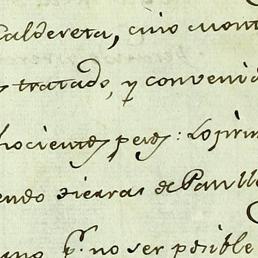 Caldereta, cuio mont
tratado, y convenid
hocientos pesos: Lo prim
endo tierras de Paull
pr. no ser posible